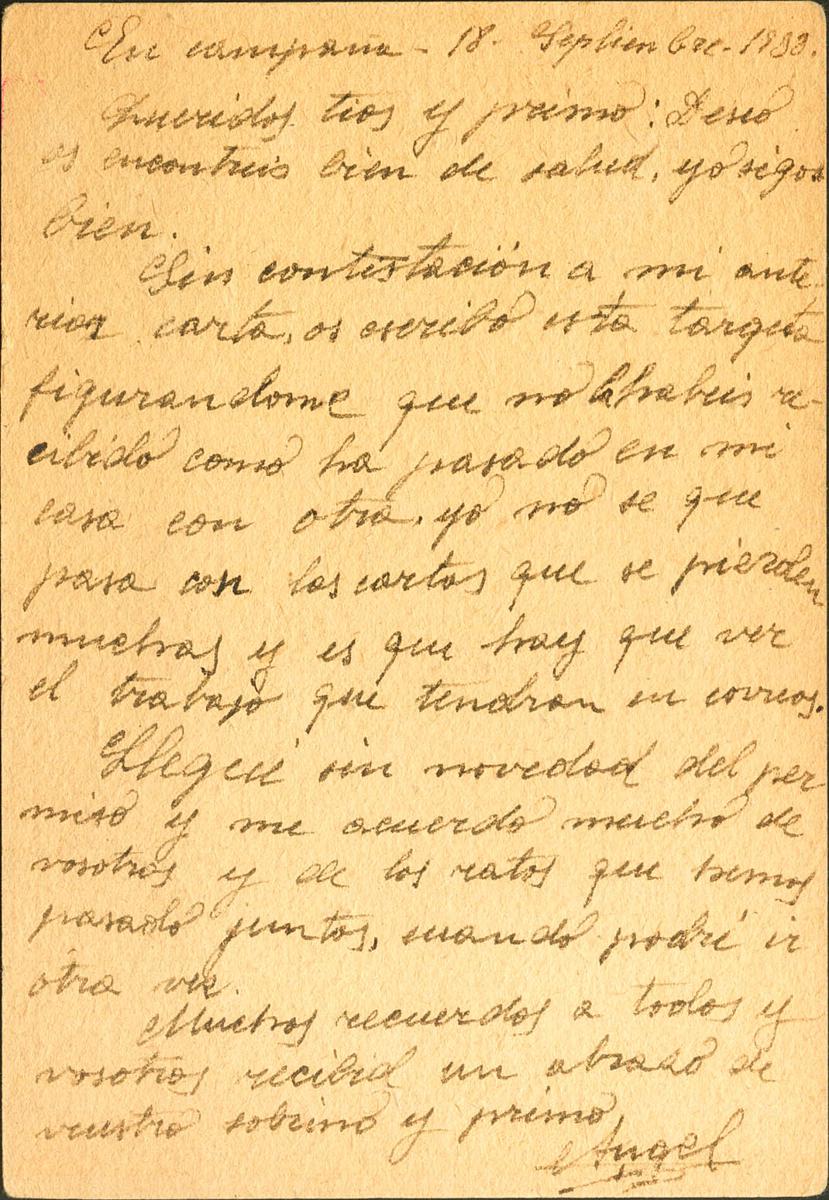 En campaña - 18 - Septiembre - 1938.
Queridos tios y primo: Deseo
os encontreis bien de salud, yo sigo
bien.
Sin contestación a mi ante-
rior carta, os escribo esta targeta
figurandome que no la habeis re-
cibido como ha pasado en mi
casa con otra, yo no se que
pasa con las cartas que se pierden
muchas y es que hay que ver
el trabajo que tendran en correos.
Llegué sin novedad del per
miso y me acuerdo mucho de
vosotros y de los ratos que hemos
pasado juntos, cuando podré ir
otra vez.
Muchos recuerdos a todos y
vosotros recibid un abrazo de
vuestro sobrino y primo,
Angel